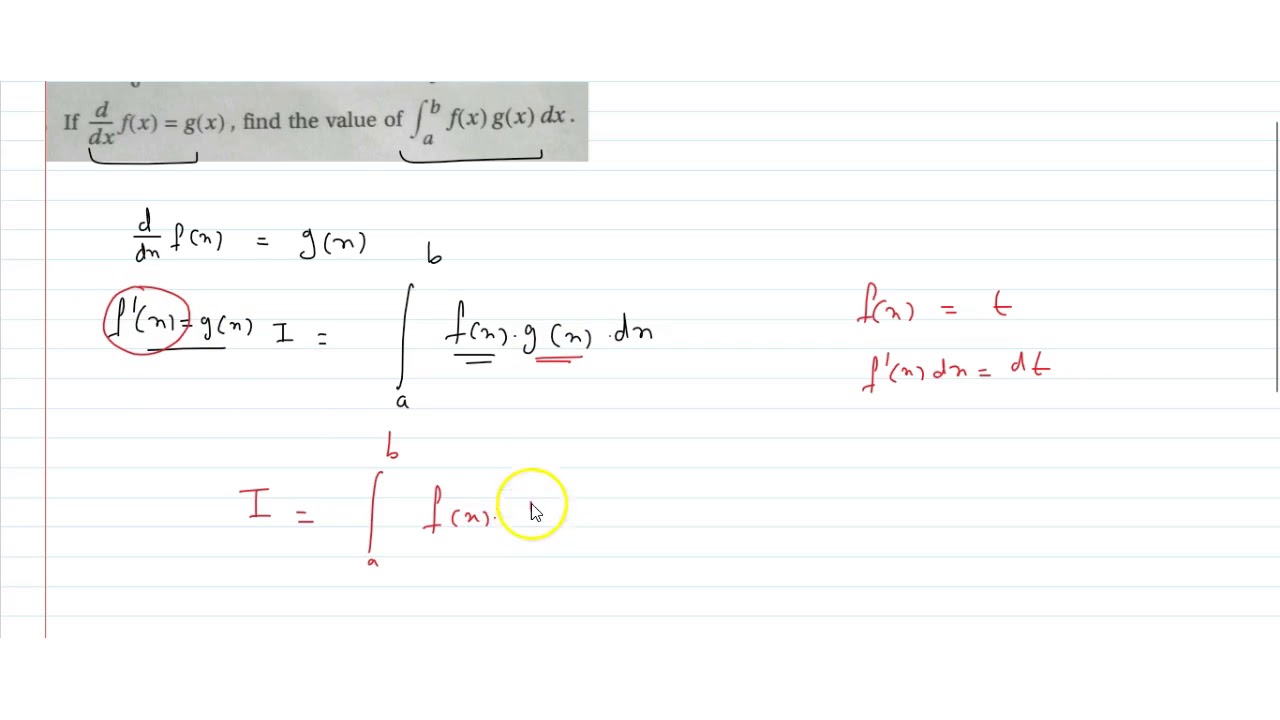 If d/dx f(x) = g(x), find the value of ∫_a^b f(x) g(x) dx.
d/dx f(x) = g(x)
f'(x) = g(x) I = ∫_a^b f(x) · g(x) · dx
f(x) = t
f'(x) dx = dt
I = ∫_a^b f(x) ·